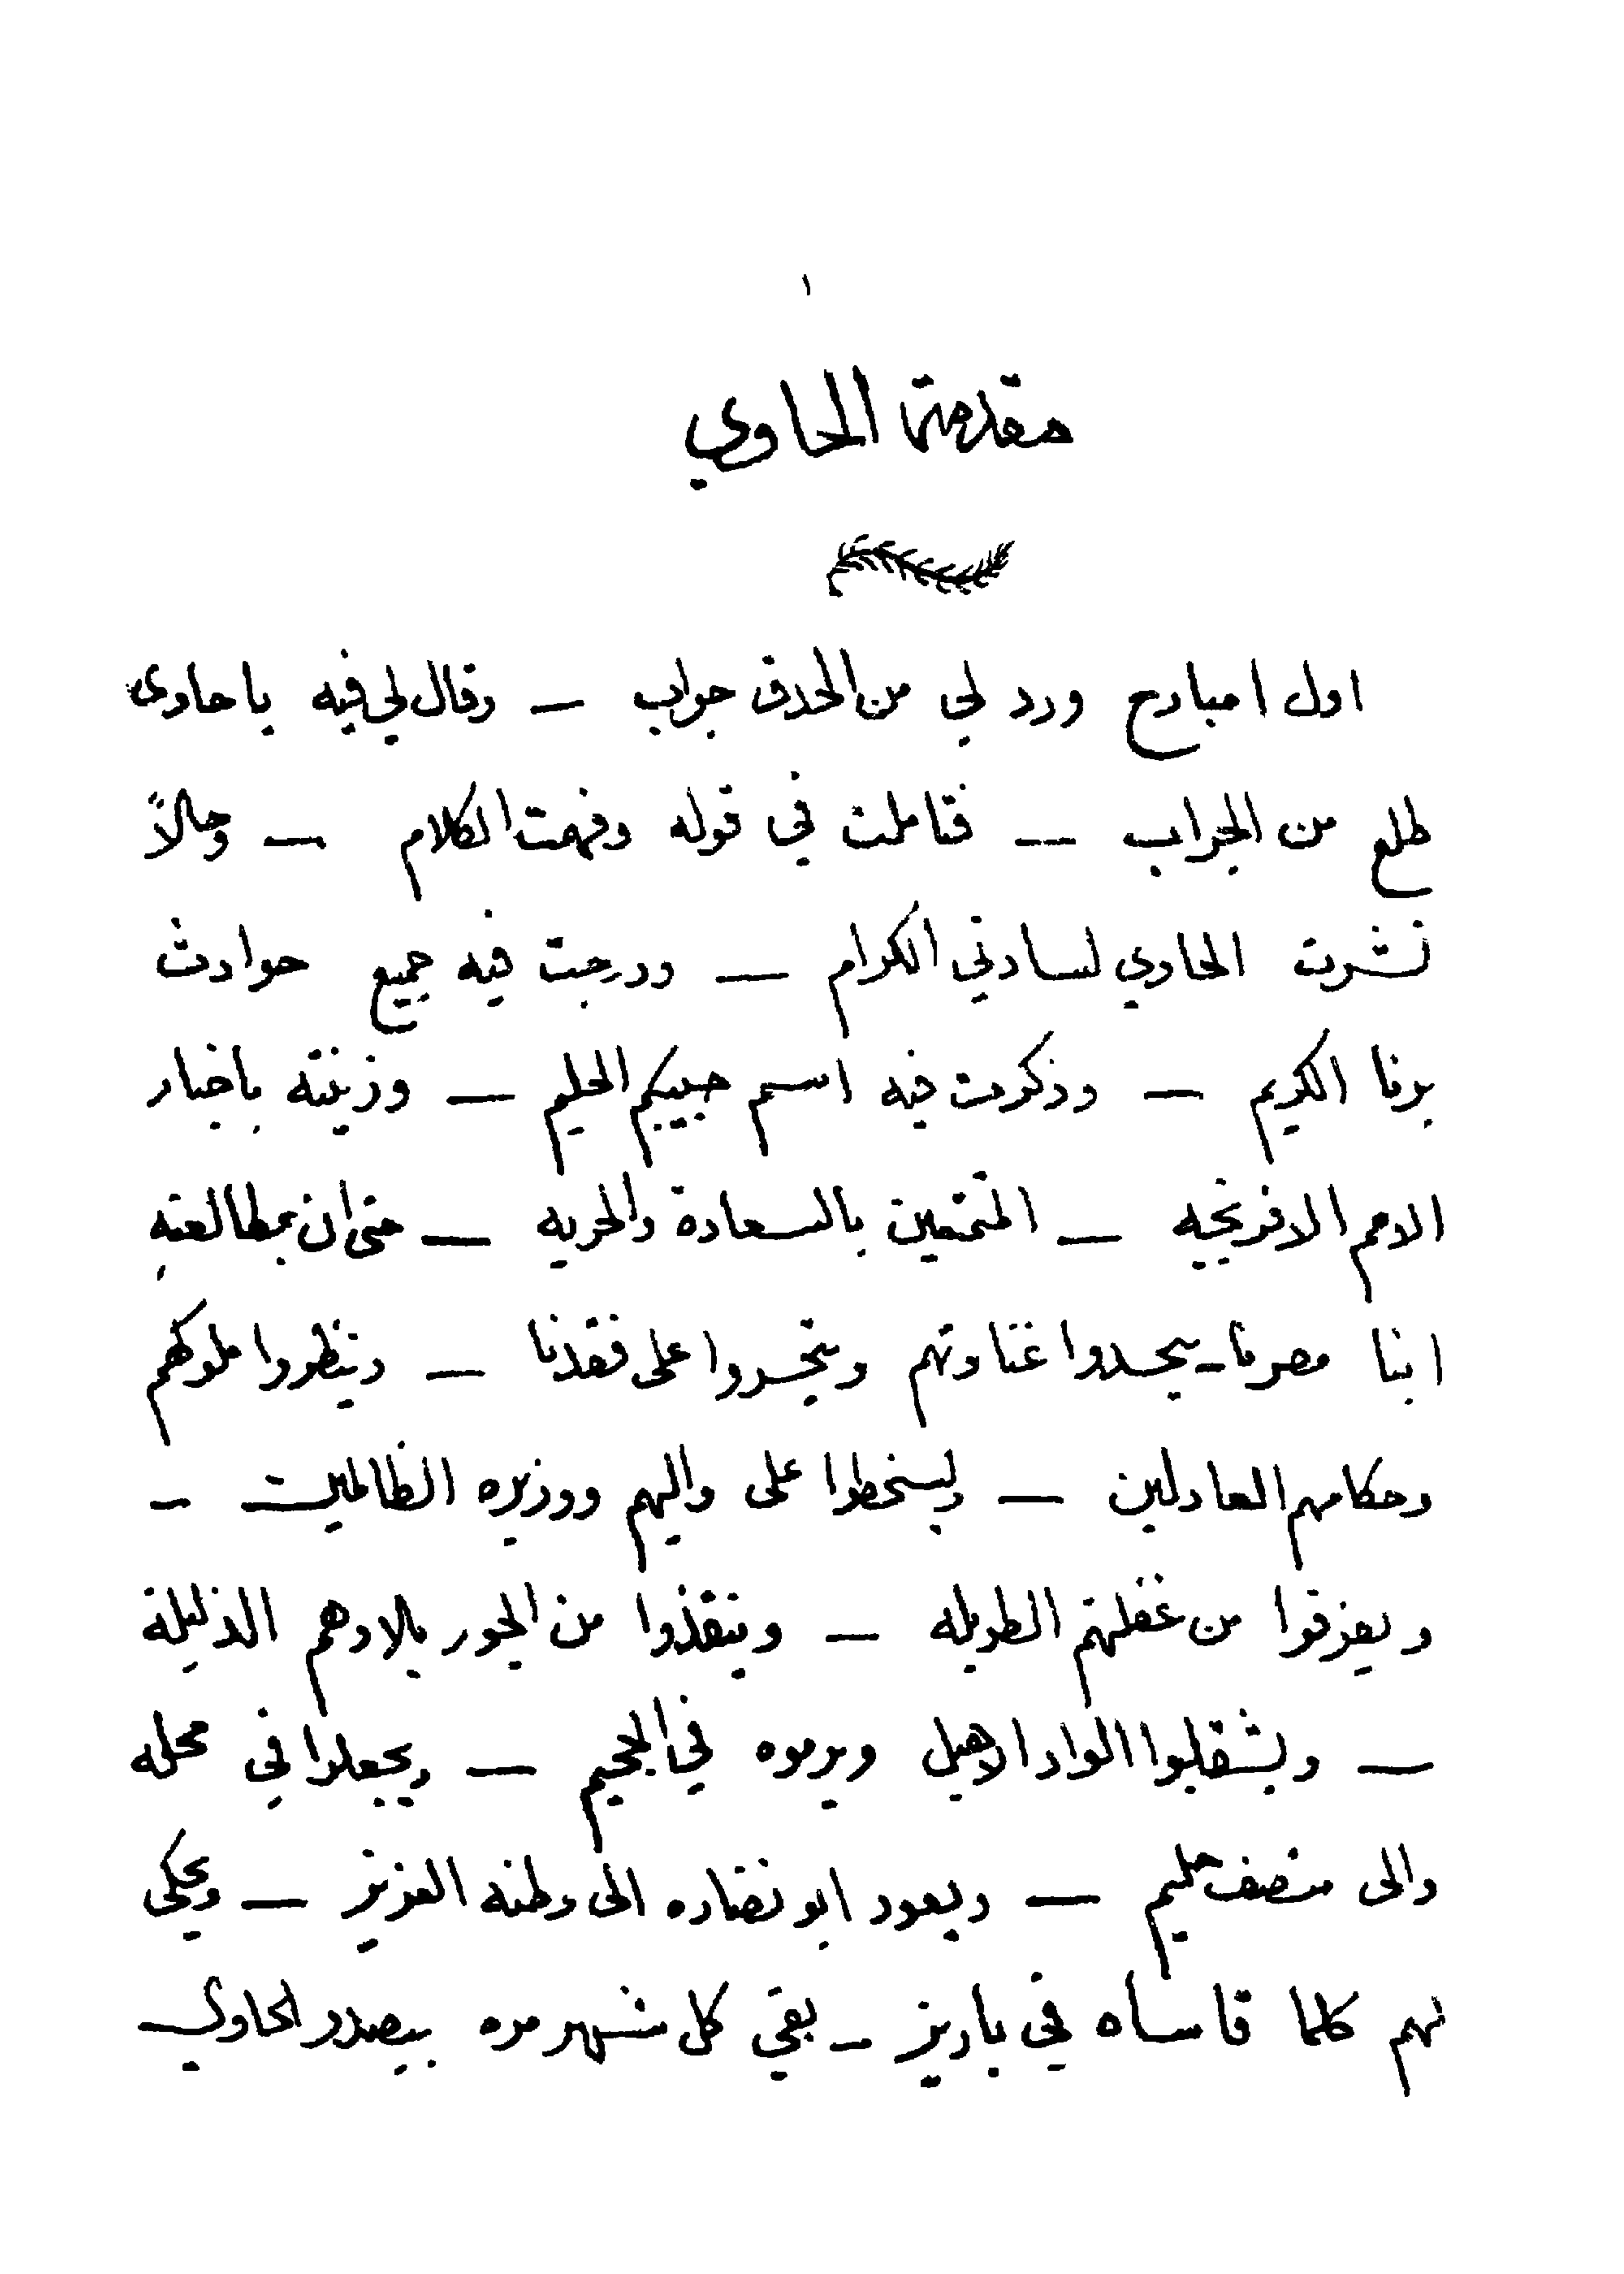 ١
مقدمة الحاوي
اول امبارح ورد لي من الحدق جواب — وقال لي فيه يا حاوى
طلع من الجراب — فتاملت في قوله وفهمت الكلام — وحالاً
نشرت الحاوي لسادتي الكرام — ودرجت فيه جميع حوادث
برنا الكريم — وذكرت فيه اسم حبيبكم الحليم — وزينته باخبار
الامم الافرنجيه — المتمتعين بالسعادة والحريه — حتى ان بمطالعته
ابنا مصرنا — يحسدوا غناوتهم ويتحسروا على فقدنا — وينظروا ملوكهم
وحكامهم العادلين — ويسخطوا على واليهم ووزيره الظالمين —
ويفزقوا من غفلتهم الطويله — وينقذوا من الجور بلادهم الذليلة
— ويشقلبوا الواد الاهبل ويرموه في الجحيم — ويجعلوا في محله
والى منصف حليم — ويعود ابو نضاره الى وطنه العزيز — ويحكى
لهم كلما قاساه في باريز — بقي كل شهر مره بيصدر الحاوي